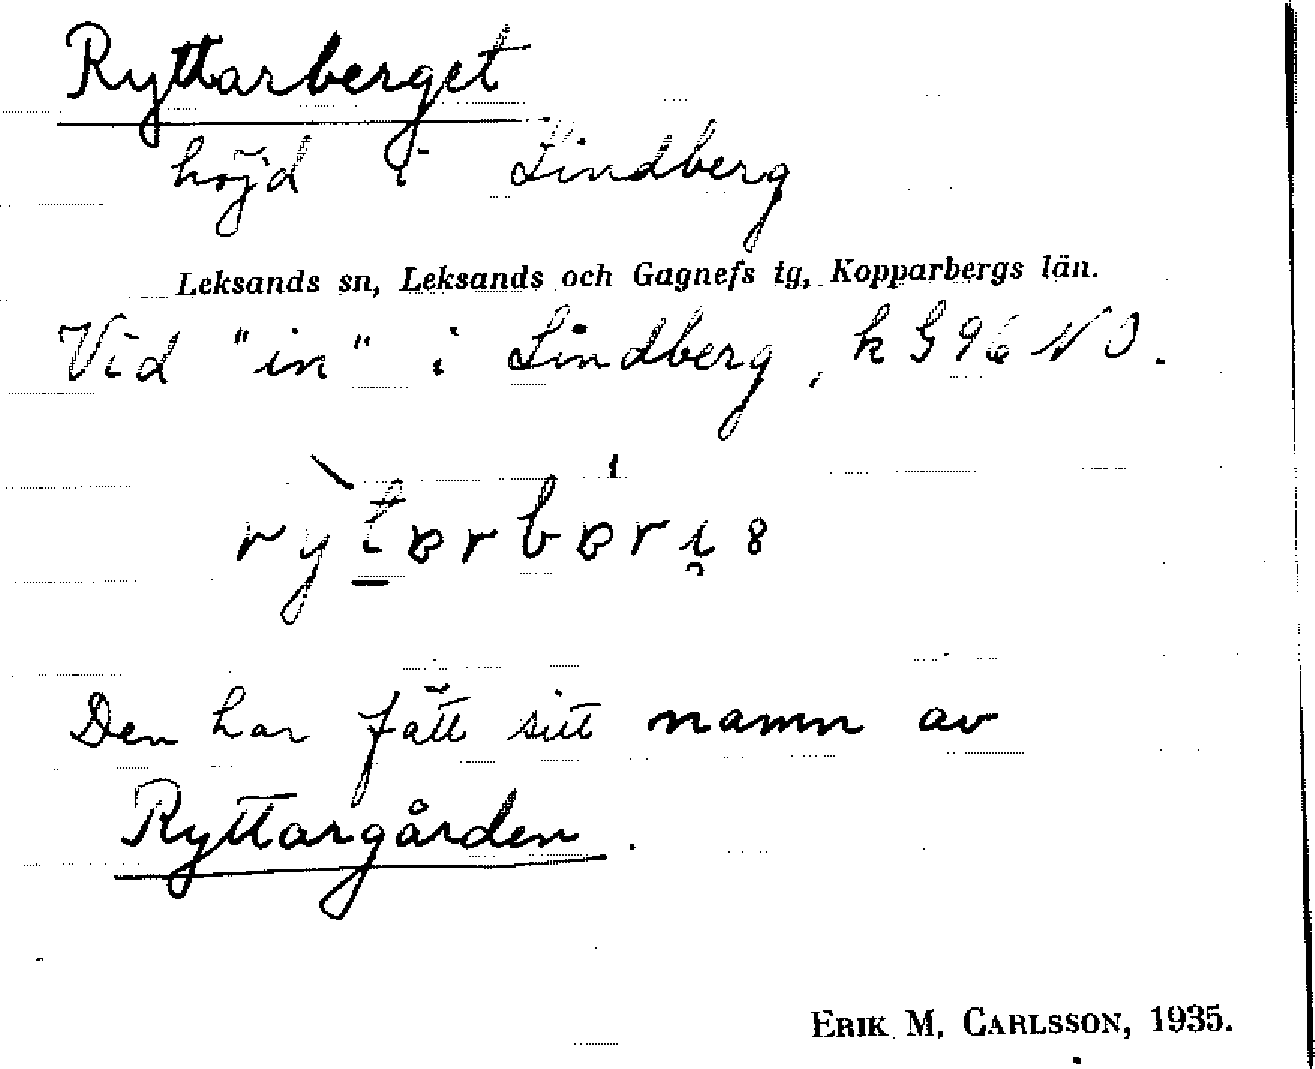 Ryttarberget
höjd i Lindberg
Leksands sn, Leksands och Gagnefs tg, Kopparbergs län.
Vid "in" i Lindberg, k G 96 NO.
Den har fått sitt namn av
Ryttargården.
ERIK M. CARLSSON, 1935.